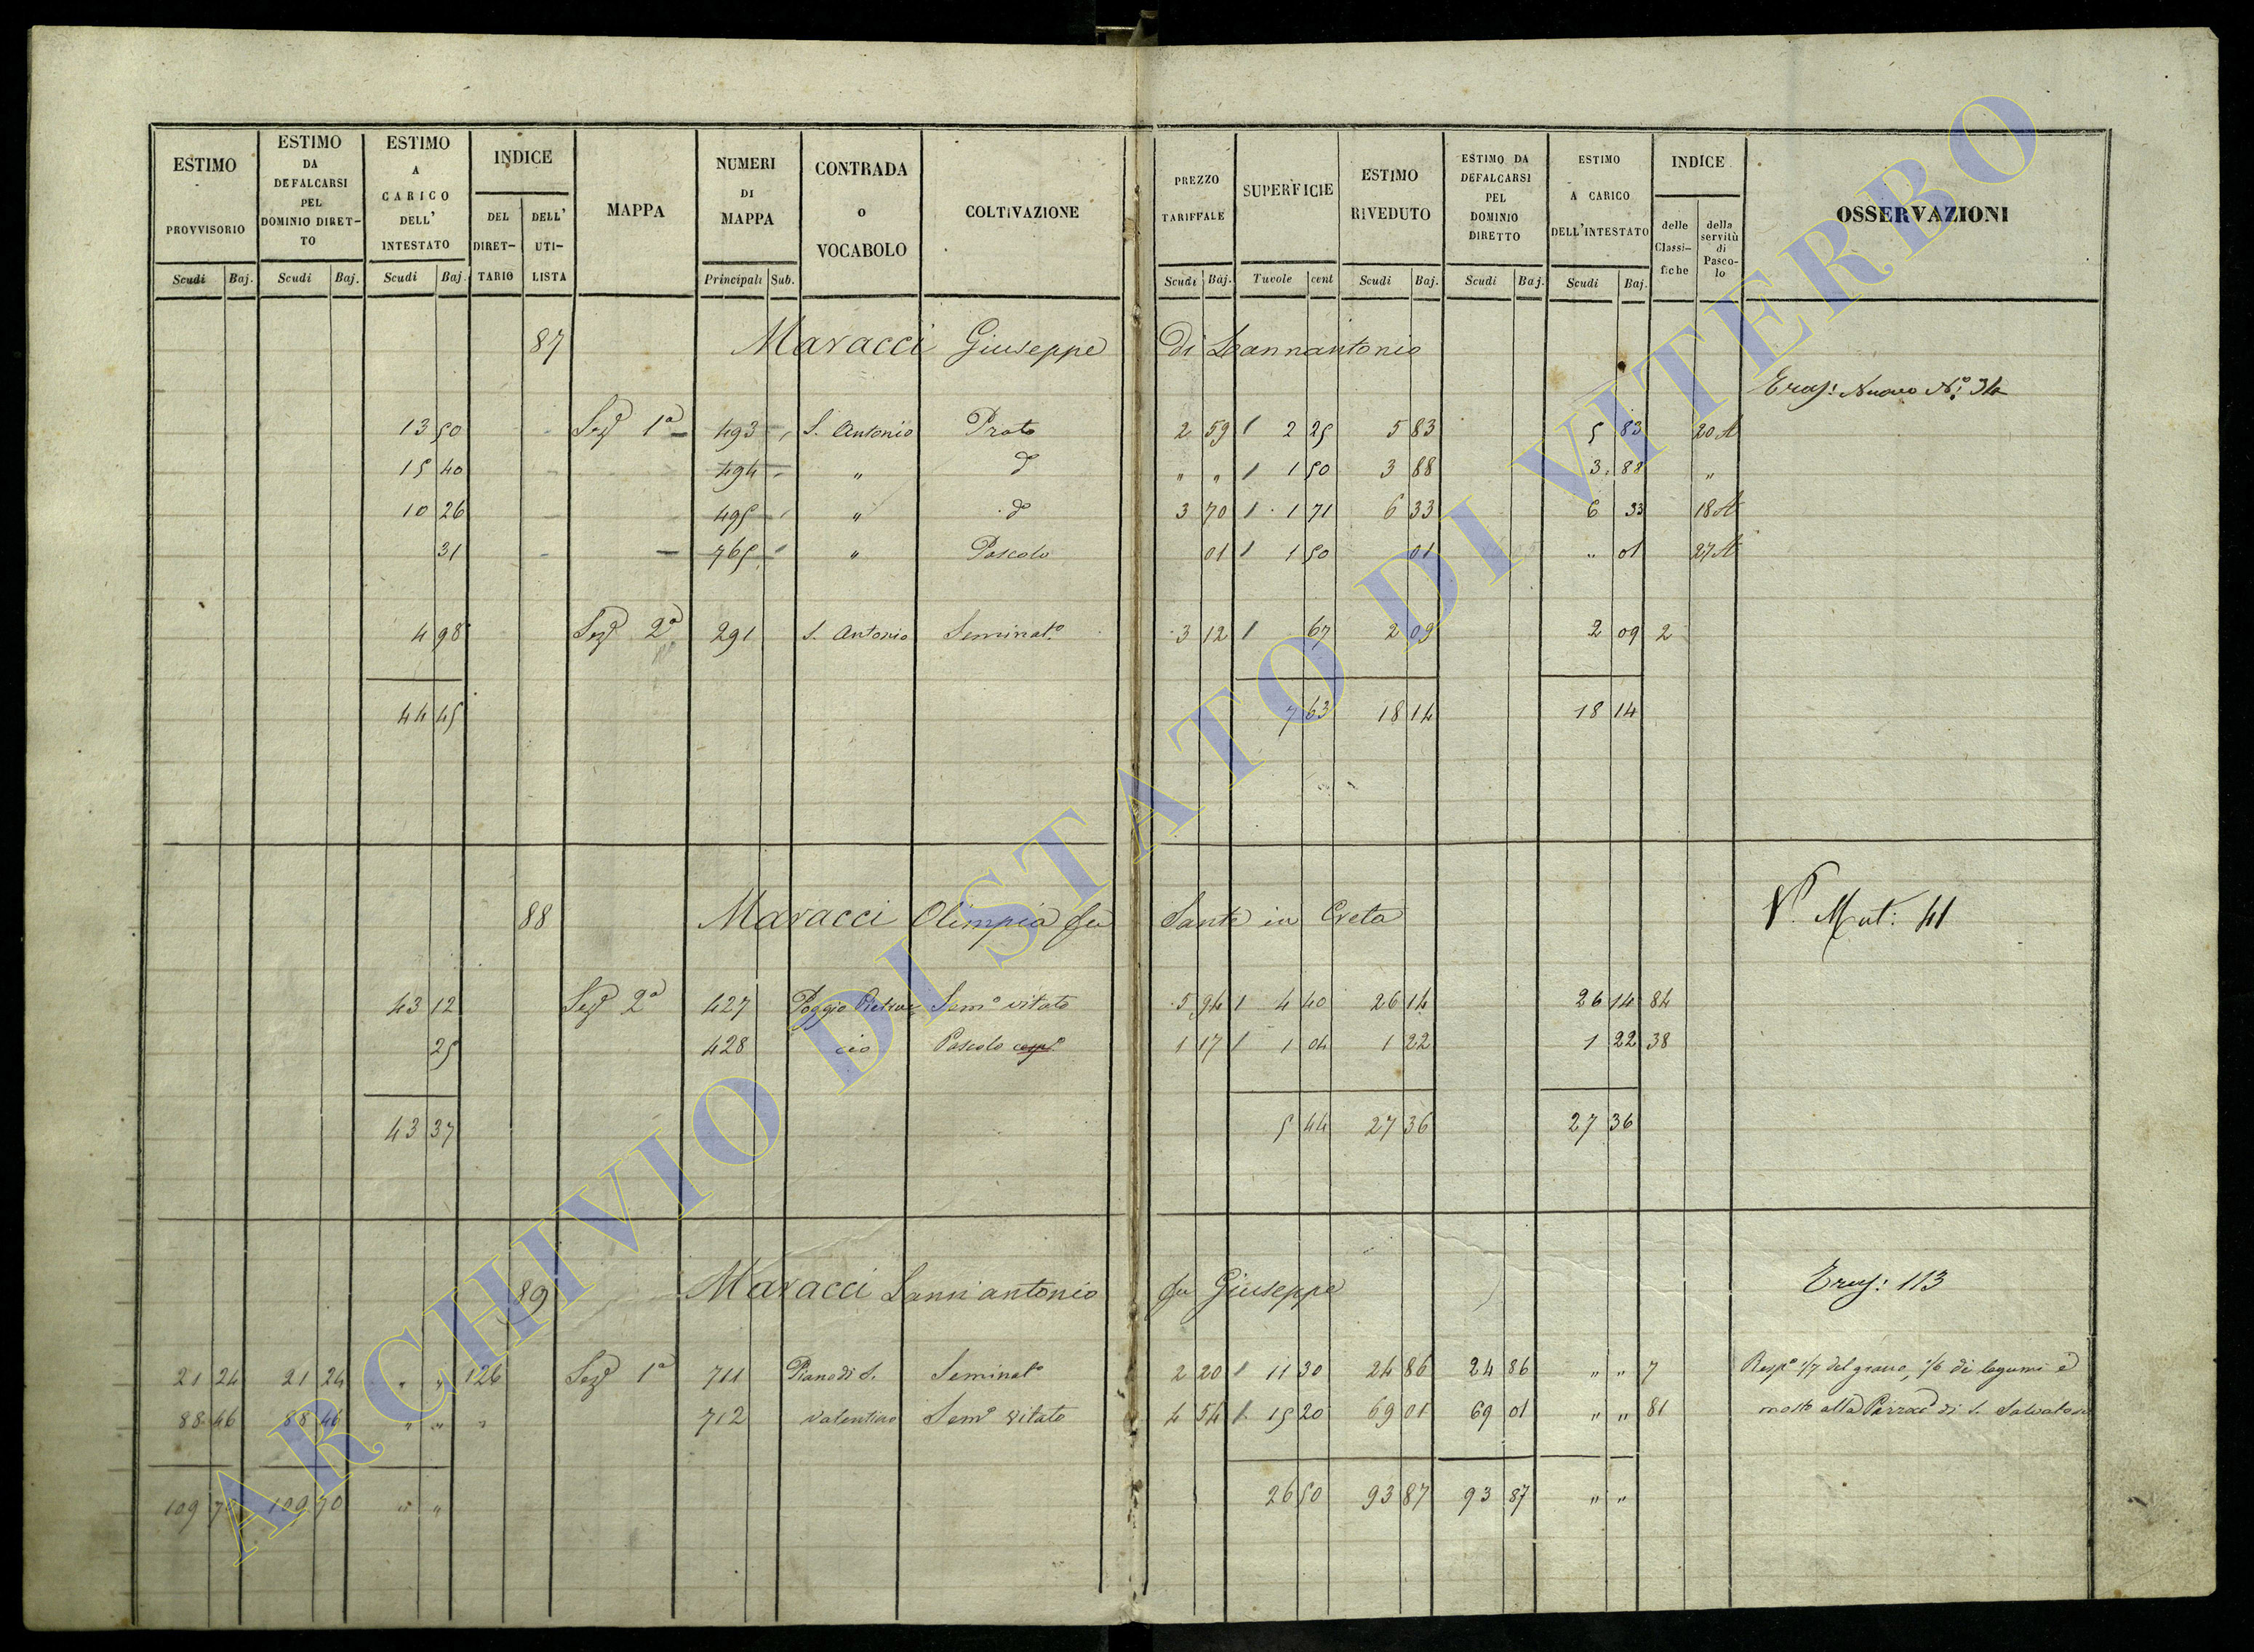 ESTIMO PROVVISORIO Scudi Baj.
ESTIMO DA DEFALCARSI PEL DOMINIO DIRETTO Scudi Baj.
ESTIMO A CARICO DELL' INTESTATO Scudi Baj.
INDICE DEL DIRETTARIO DELL' UTILISTA
MAPPA
NUMERI DI MAPPA Principali Sub.
CONTRADA o VOCABOLO
COLTIVAZIONE
PREZZO TARIFFALE Scudi Baj.
SUPERFICIE Tavole cent
ESTIMO RIVEDUTO Scudi Baj.
ESTIMO DA DEFALCARSI PEL DOMINIO DIRETTO Scudi Baj.
ESTIMO A CARICO DELL'INTESTATO Scudi Baj.
INDICE delle Classifiche della servitù di Pascolo
OSSERVAZIONI
87 Maracci Giuseppe di Sannantonio
Nuovo N.° 34
13 50 Sez. 1a 493 S. Antonio Prato 2 59 1 2 25 5 83 5 83 20 A
15 40 494 " d° " " 1 1 50 3 88 3 88 "
10 26 495 " d° 3 70 1 1 71 6 33 6 33 18 A
31 765 " Pascolo 01 1 1 50 01 " 01 27 A
4 98 Sez. 2a 291 S. Antonio Seminat° 3 12 1 67 2 09 2 09 2
44 45 7 63 18 14 18 14
88 Maracci Olimpia fu Sante in Creta
V. Mat: 41
43 12 Sez. 2a 427 Poggio Sem° vitato 5 94 1 4 40 26 14 26 14 84
25 428 cio Pascolo cesp° 1 17 1 1 04 1 22 1 22 38
43 37 5 44 27 36 27 36
89 Maracci Sann'antonio fu Giuseppe
113
21 24 21 24 " " 126 Sez. 1a 711 Piano di S. Seminat° 2 20 1 11 30 24 86 24 86 " " 7 Resp° 1/7 del grano, 1/6 di legumi e
88 46 88 46 " " " 712 Valentino Sem° vitato 4 54 1 15 20 69 01 69 01 " " 81 mosto alla Parroc di S. Salvatore
109 70 109 70 " " 26 50 93 87 93 87 " "
ARCHIVIO DI STATO DI VITERBO